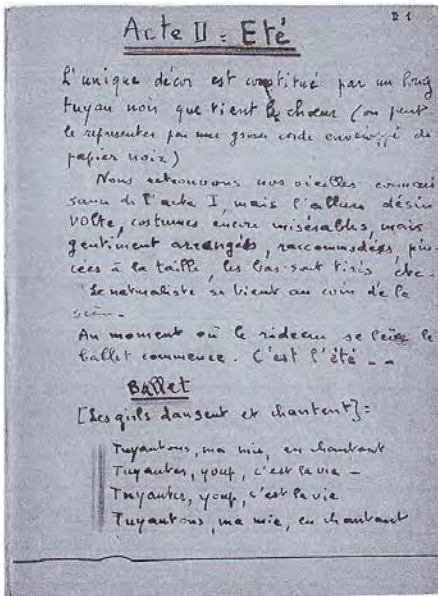 B 1
Acte II = Eté
L'unique décor est constitué par un long
tuyau noir que tient le choeur (on peut
le représenter par une grosse corde de
papier noir)
Nous retrouvons nos vieilles connais
sances de l'acte I, mais l'allure désin
volte, costumes encore misérables, mais
gentiment arrangés, raccommodés, pin
cées à la taille, les bas sont tirés etc -
Le naturaliste se tient au coin de la
Au moment où le rideau se lève le
ballet commence. C'est l'été - -
Ballet
[Les girls dansent et chantent] =
Tuyautons, ma mie, en chantant
Tuyauter, youp, c'est la vie -
Tuyauter, youp, c'est la vie
Tuyautons, ma mie, en chantant